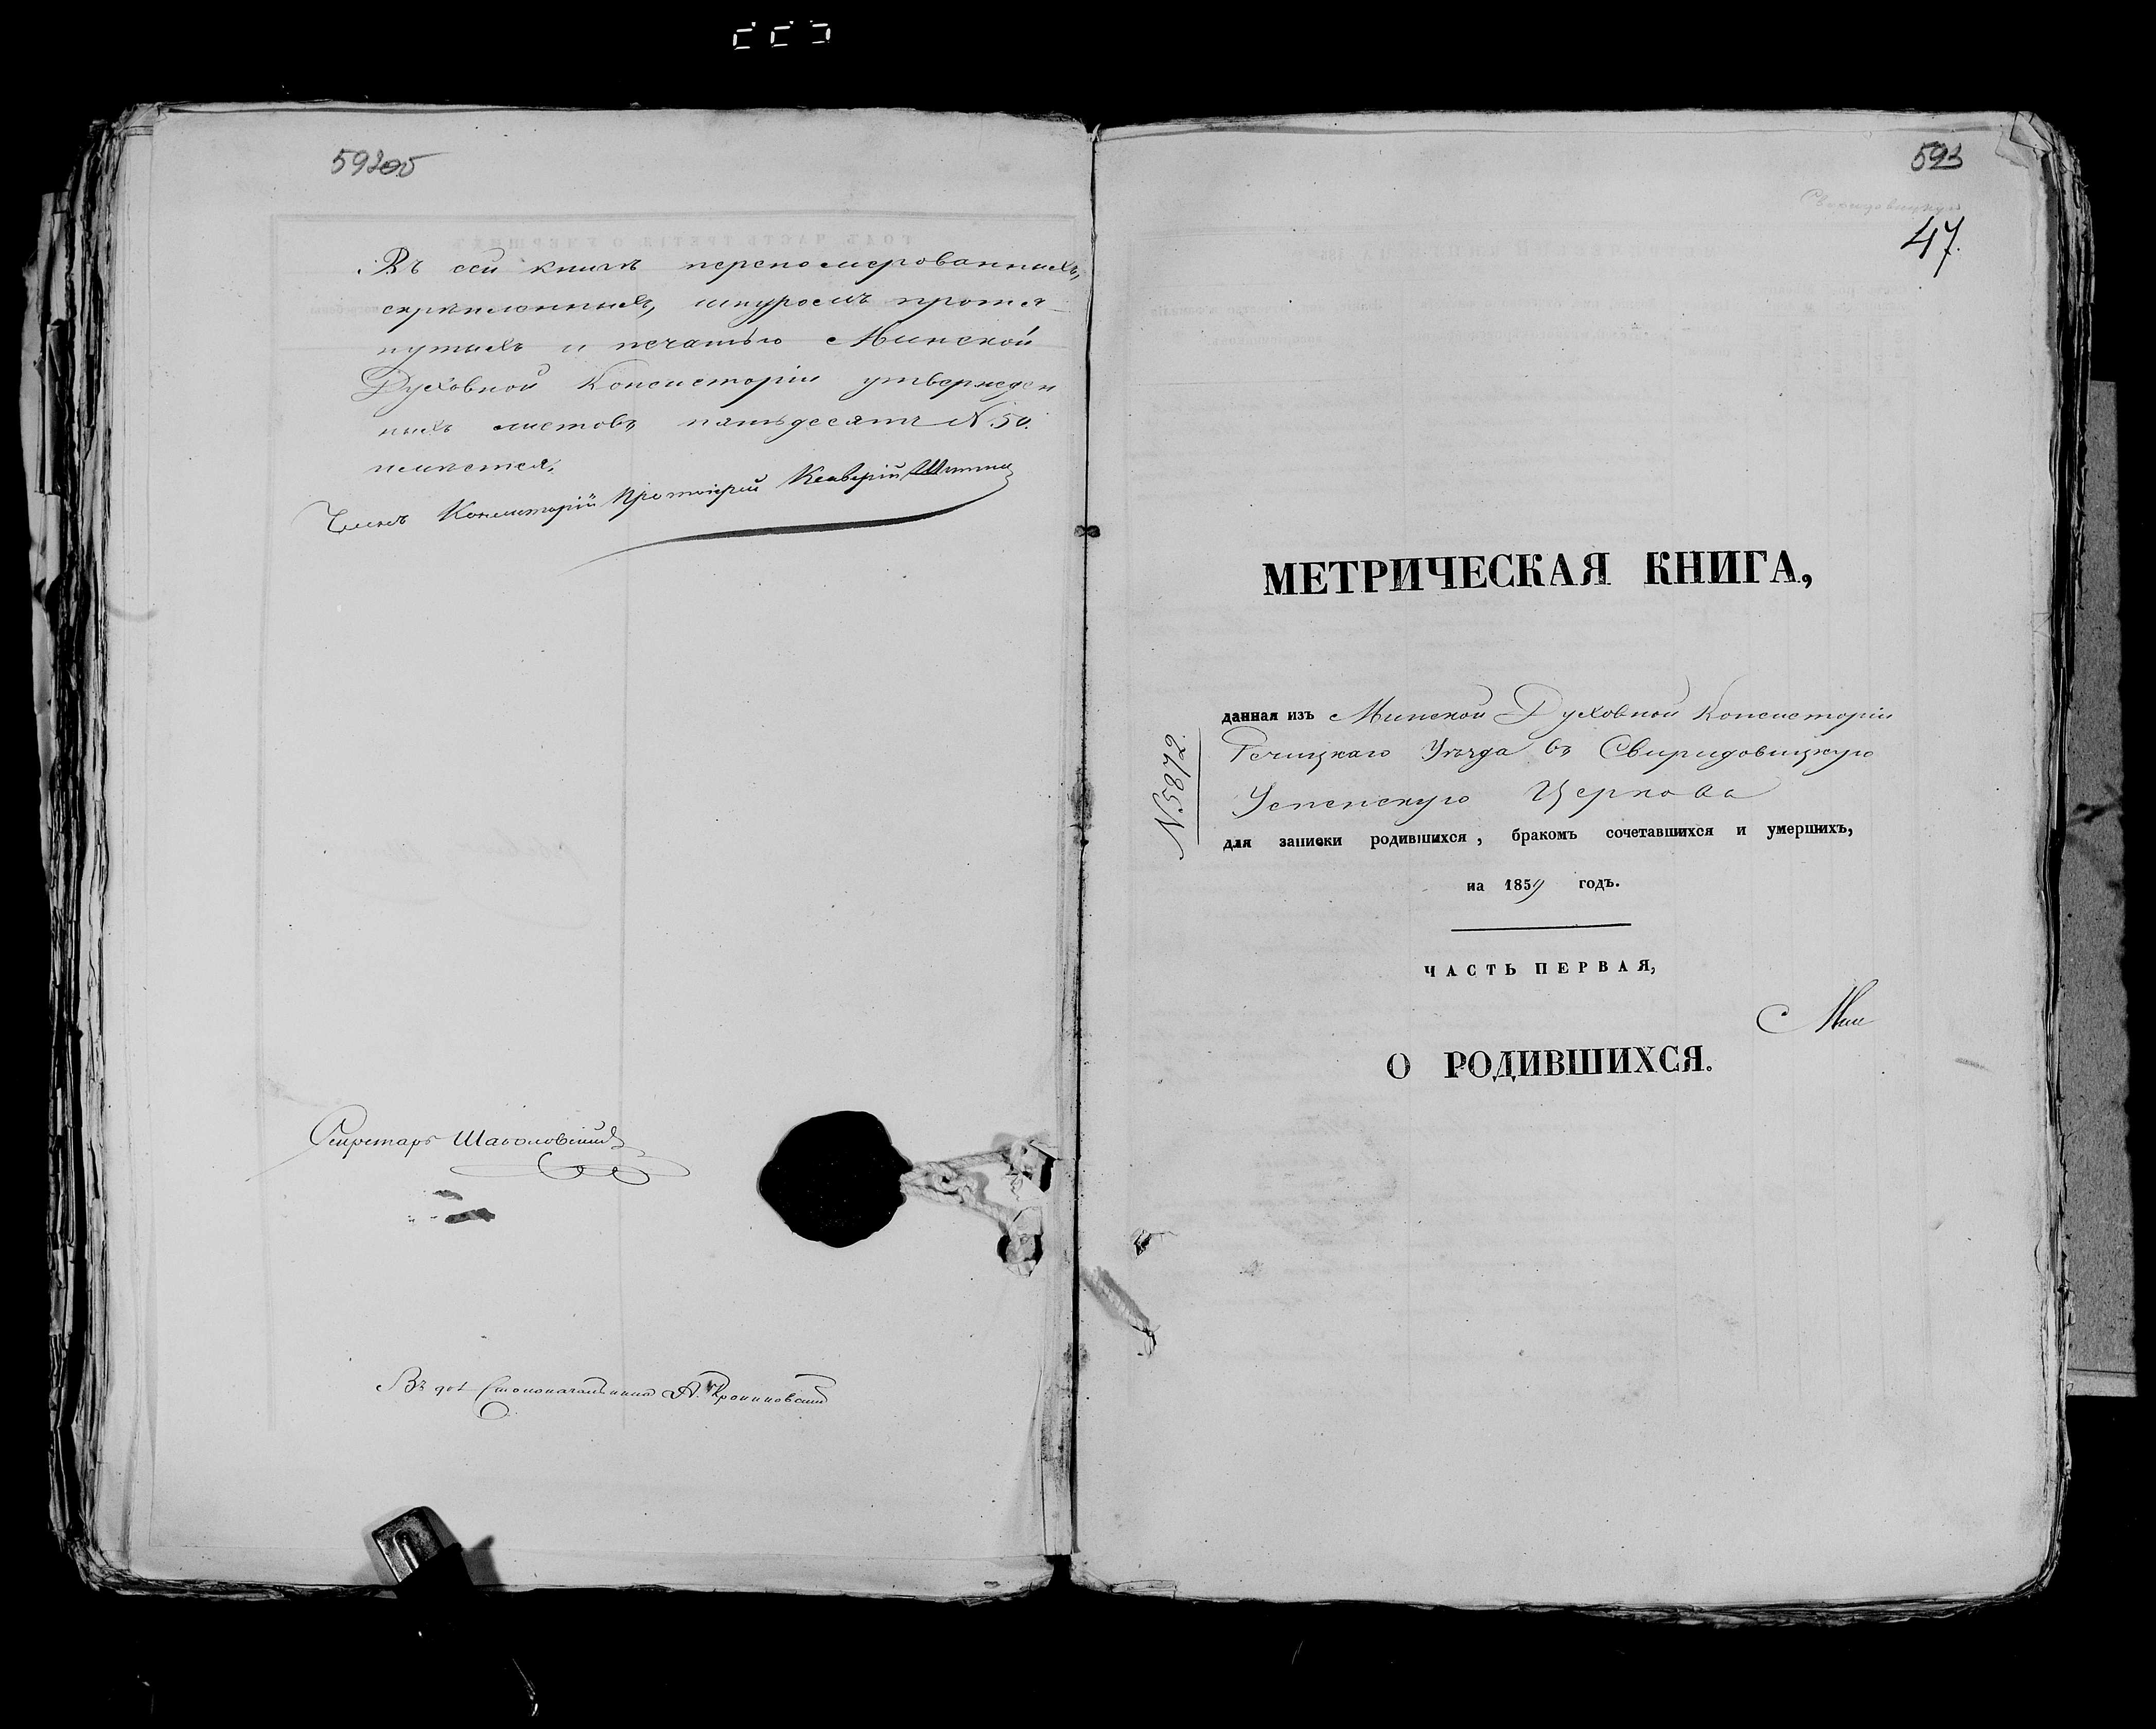 Въ сей книгѣ перенумерованныхъ,
скрѣпленныхъ, шнуромъ протя-
нутыхъ и печатью Минской
Духовной Консисторіи утвержден
ныхъ листовъ пятьдесятъ N. 50.
имѣется.
Членъ Консисторіи Протоіерей Ксаверій
Секретарь
Въ дол Столоначальника А.
593
Свиридовицкую
47.
МЕТРИЧЕСКАЯ КНИГА,
N. 5872.
данная изъ Минской Духовной Консисторіи
Речицкаго Уѣзда въ Свиридовицкую
Успенскую Церковь
для записки родившихся, бракомъ сочетавшихся и умершихъ,
на 1859 годъ.
ЧАСТЬ ПЕРВАЯ,
О РОДИВШИХСЯ.